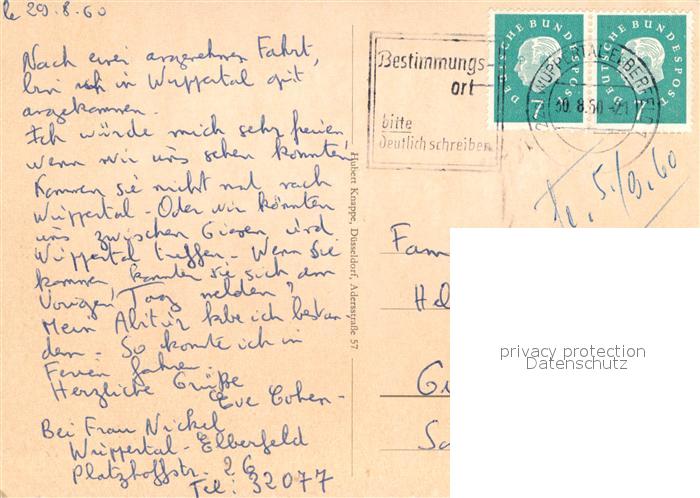 le 29.8.60
Nach einer angenehmen Fahrt,
bin ich in Wuppertal gut
angekommen.
Ich würde mich sehr freuen
wenn wir uns sehen könnten!
Kommen sie nicht mal nach
Wuppertal - Oder wir könnten
uns zwischen Giesen und
Wuppertal treffen - Wenn Sie
kommen, könnten sie sich am
Vorigen Tag melden?
Mein Abitur habe ich bestan-
den - So konnte ich in
Ferien fahren.
Herzliche Grüße
Eve Cohen -
Bei Frau Nickel
Wuppertal - Elberfeld
Platzhoffstr. 26
Tel: 32077
Hubert Knappe, Düsseldorf, Adersstraße 57
Bestimmungs-
ort
bitte
deutlich schreiben
DEUTSCHE BUNDESPOST
7
DEUTSCHE BUNDESPOST
7
WUPPERTAL-ELBERFELD
30.8.60-21
5./9.60
Fam
Hel
Gi
privacy protection
Datenschutz